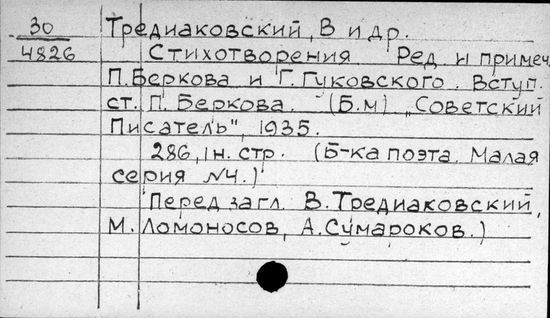 30 Тредиаковский, В и др.
4826 Стихотворения Ред. и примеч.
П. Беркова и Г. Гуковского. Вступ.
ст. П. Беркова. (Б.м) „Советский
Писатель", 1935.
286, 1 н. стр. (Б-ка поэта. Малая
серия №4.)
Перед загл. В. Тредиаковский,
М. Ломоносов, А. Сумароков.)